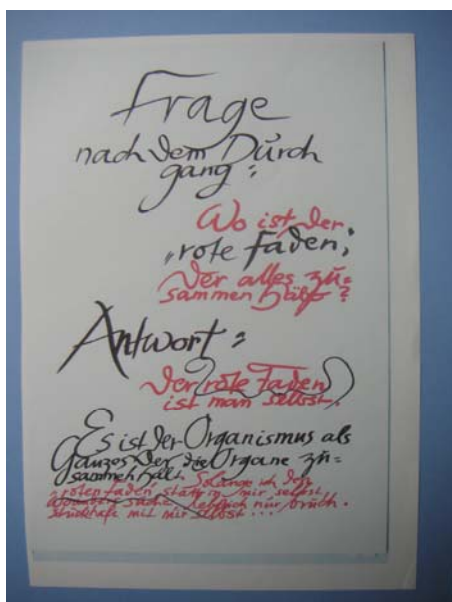 Frage
nach dem Durch
gang:
Wo ist der
„rote Faden“,
der alles zu=
sammen hält?
Antwort:
Der rote Faden
ist man selbst.
Es ist der Organismus als
Ganzes der die Organe zu=
sammen hält. Solange ich den
roten Faden statt in mir selbst
suche, leb ich nur bruch=
stückhaft mit mir selbst ...